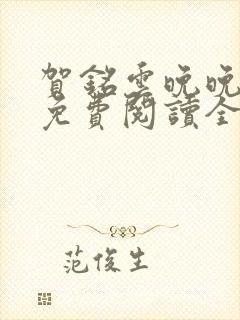 賀銘雲晚晚
免費閱讀全
范俊生